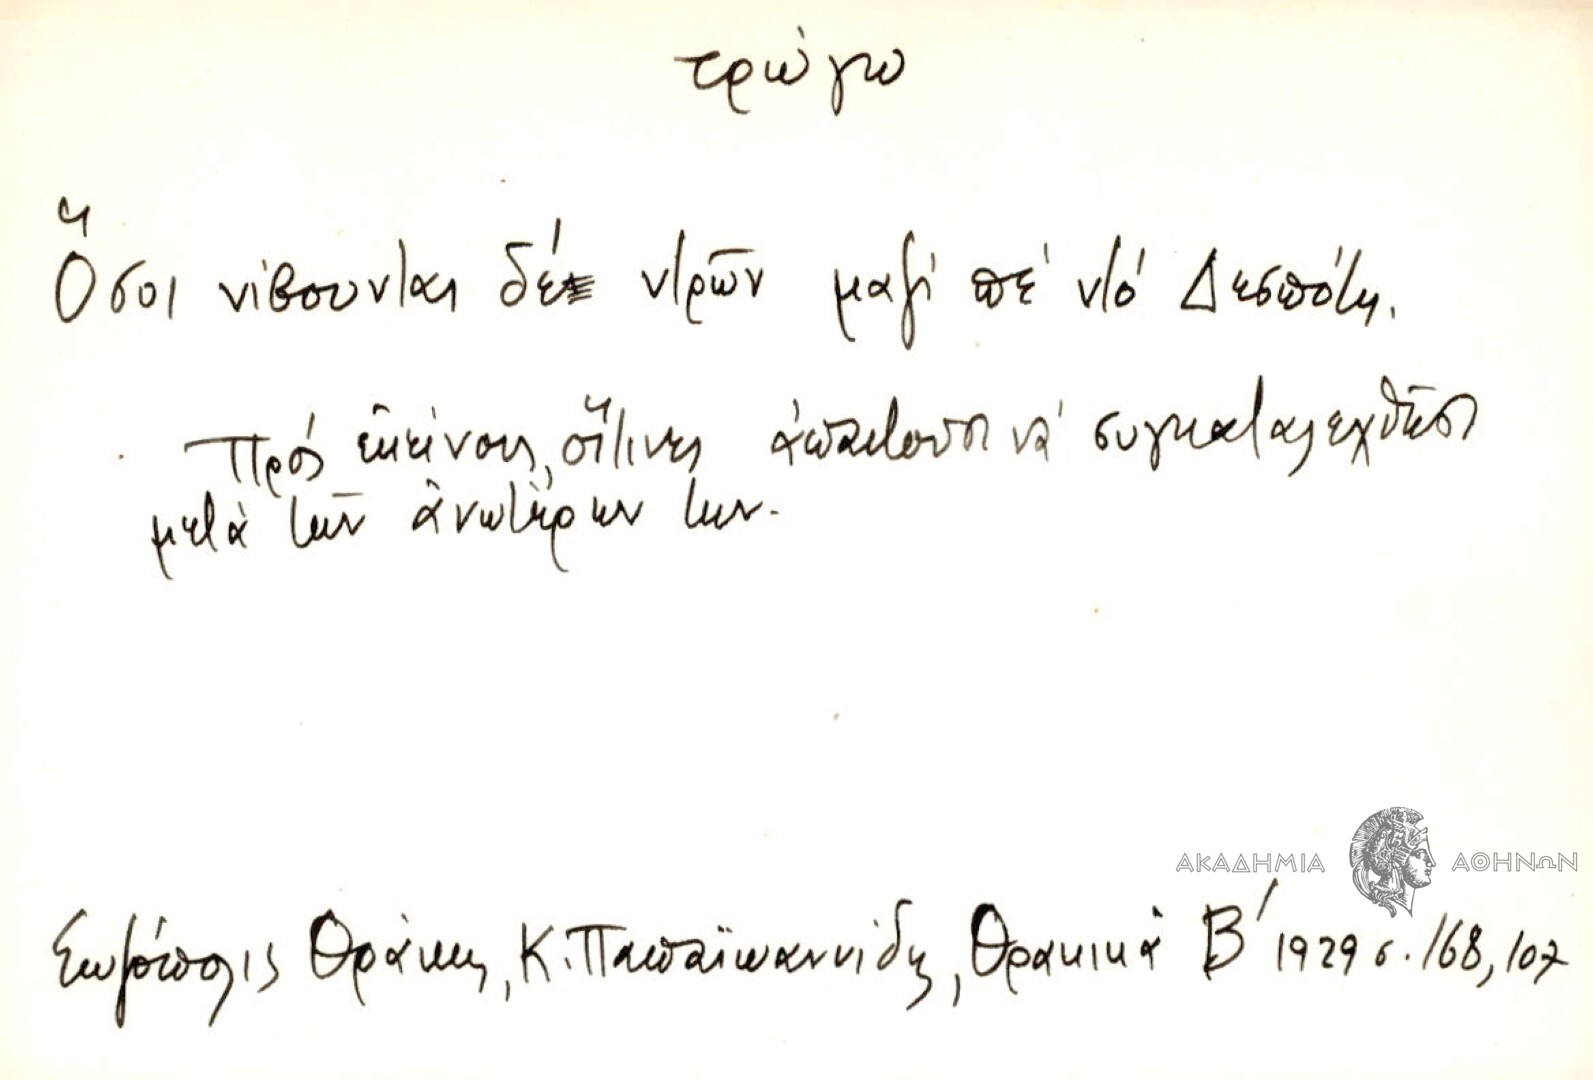 τρώγω
Ὅσοι νίβουνται δέ ντρῶν μαζί πέ ντό Δεσπότη.
Πρός ἐκείνους, οἵτινες ἀπαιτοῦσι νά συγκαταλεχθῶσι
μετά τῶν ἀνωτέρων των.
ΑΚΑΔΗΜΙΑ ΑΘΗΝΩΝ
Σωζόπολις Θράκης, Κ. Παπαϊωαννίδης, Θρακικά Β΄ 1929 σ. 168, 107